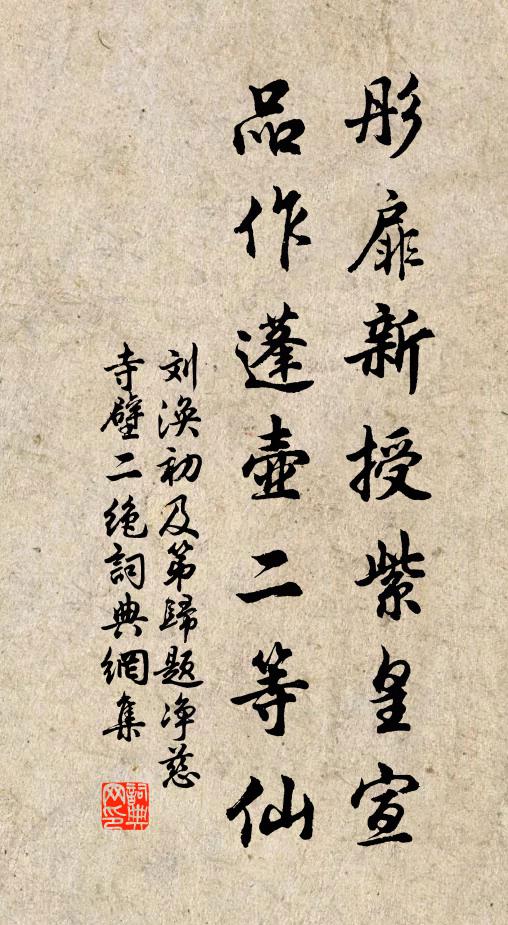 彤扉新授紫皇宣
品作蓬壺二等仙
刘渙初及第歸題净慈
寺壁二绝詞典網集
詞典网印